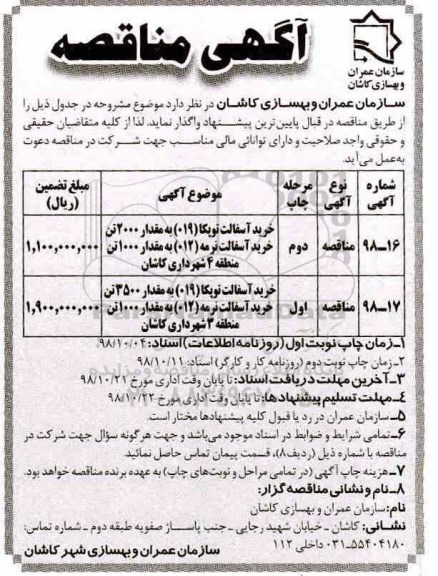 آگهی مناقصه
سازمان عمران
و بهسازی کاشان
سازمان عمران و بهسازی کاشان در نظر دارد موضوع مشروحه در جدول ذیل را
از طریق مناقصه در قبال پایین‌ترین پیشنهاد واگذار نماید. لذا از کلیه متقاضیان حقیقی
و حقوقی واجد صلاحیت و دارای توانائی مالی مناسب جهت شرکت در مناقصه دعوت
به‌عمل می‌آید.
شماره آگهی نوع آگهی مرحله چاپ موضوع آگهی مبلغ تضمین (ریال)
۱۶-۹۸ مناقصه دوم خرید آسفالت توپکا (۰۱۹) به مقدار ۲۰۰۰ تن
خرید آسفالت نرمه (۰۱۲) به مقدار ۱۰۰۰ تن
منطقه ۴ شهرداری کاشان ۱,۱۰۰,۰۰۰,۰۰۰
۱۷-۹۸ مناقصه اول خرید آسفالت توپکا (۰۱۹) به مقدار ۳۵۰۰ تن
خرید آسفالت نرمه (۰۱۲) به مقدار ۱۰۰۰ تن
منطقه ۳ شهرداری کاشان ۱,۹۰۰,۰۰۰,۰۰۰
۱-زمان چاپ نوبت اول (روزنامه اطلاعات) اسناد: ۹۸/۱۰/۰۴.
۲-زمان چاپ نوبت دوم (روزنامه کار و کارگر) اسناد: ۹۸/۱۰/۱۱
۳-آخرین مهلت دریافت اسناد: تا پایان وقت اداری مورخ ۹۸/۱۰/۲۱
۴-مهلت تسلیم پیشنهادها: تا پایان وقت اداری مورخ ۹۸/۱۰/۲۲
۵-سازمان عمران در رد یا قبول کلیه پیشنهادها مختار است.
۶-تمامی شرایط و ضوابط در اسناد موجود می‌باشد و جهت هر گونه سؤال جهت شرکت در
مناقصه با شماره ذیل (ردیف ۸)، قسمت پیمان تماس حاصل نمائید.
۷-هزینه چاپ آگهی (در تمامی مراحل و نوبت‌های چاپ) به عهده برنده مناقصه خواهد بود.
۸-نام و نشانی مناقصه گزار:
نام: سازمان عمران و بهسازی کاشان
نشانی: کاشان - خیابان شهید رجایی - جنب پاساژ صفویه طبقه دوم - شماره تماس:
۰۳۱-۵۵۴۰۴۱۸۰ داخلی ۱۱۲
سازمان عمران و بهسازی شهر کاشان